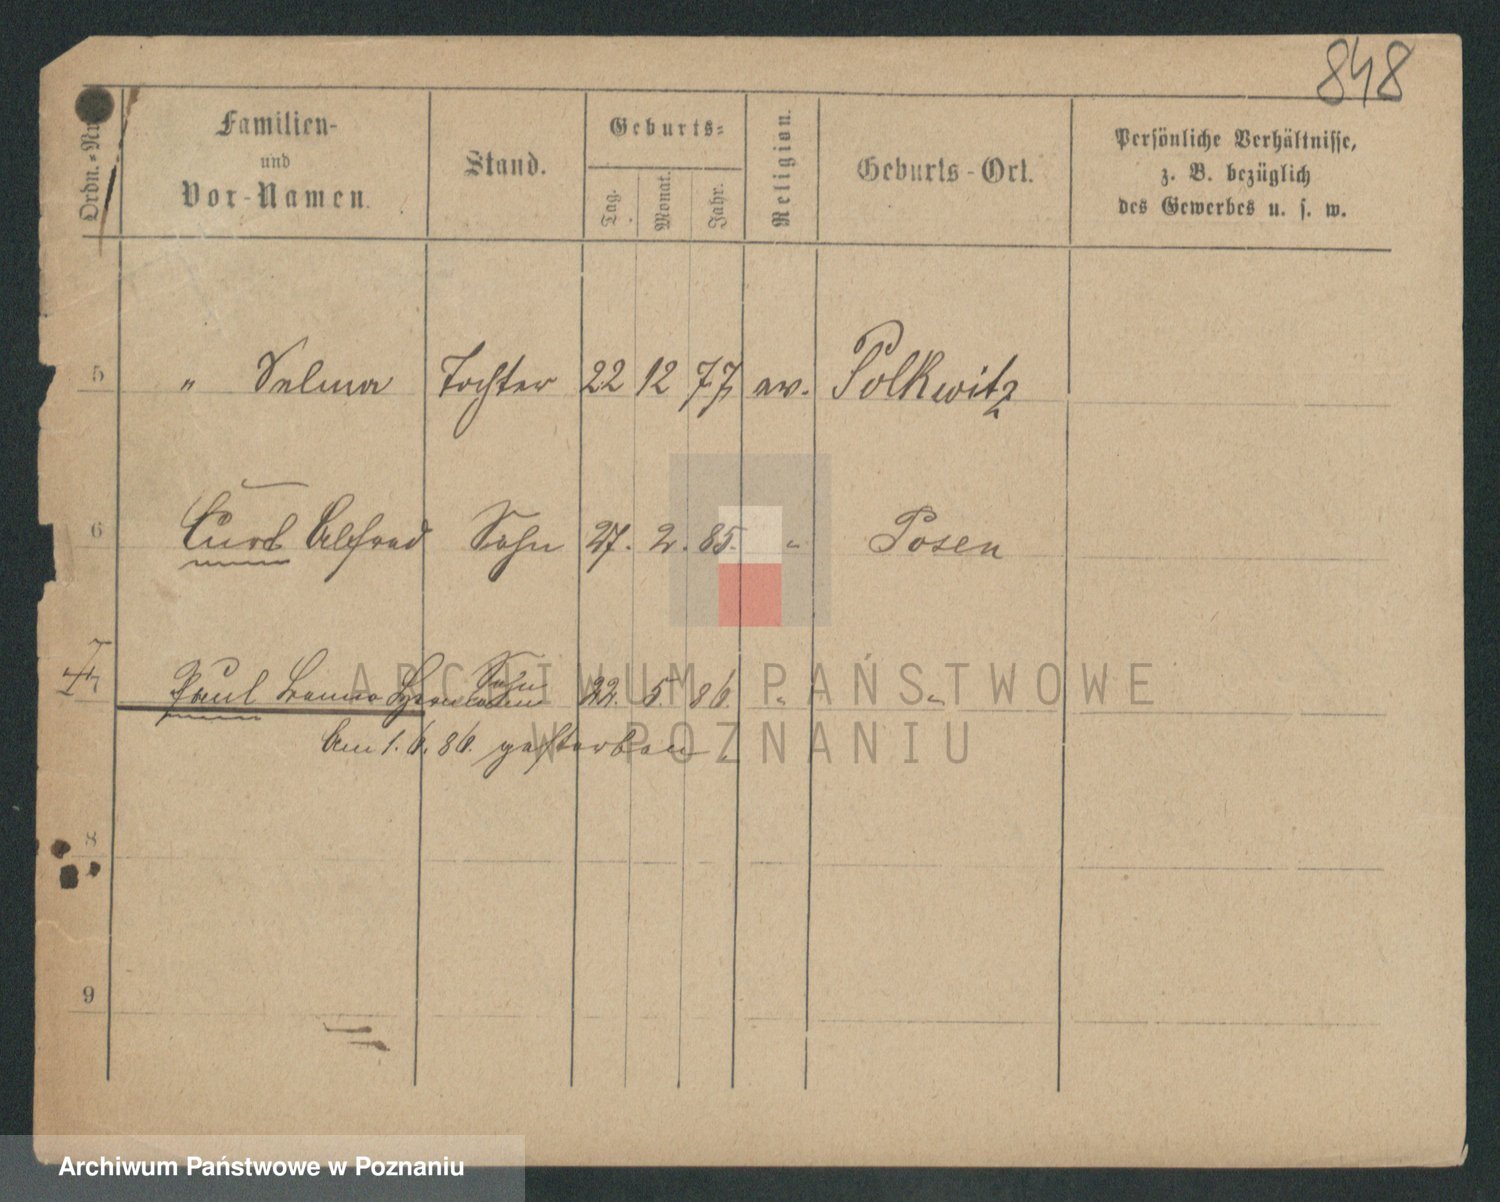 848
Ordn.-Nr.
Familien-
und
Vor-Namen.
Stand.
Geburts-
Tag.
Monat.
Jahr.
Religion.
Geburts-Ort.
Persönliche Verhältnisse,
z. B. bezüglich
des Gewerbes u. s. w.
5 " Selma Tochter 22 12 77 ev. Polkwitz
6 Curt Alfred Sohn 27. 2. 85. " Posen
7 Paul Benno Hermann Sohn 22. 5. 86. " "
Am 1. 6. 86. gestorben
8
9
ARCHIWUM PAŃSTWOWE
W POZNANIU
Archiwum Państwowe w Poznaniu